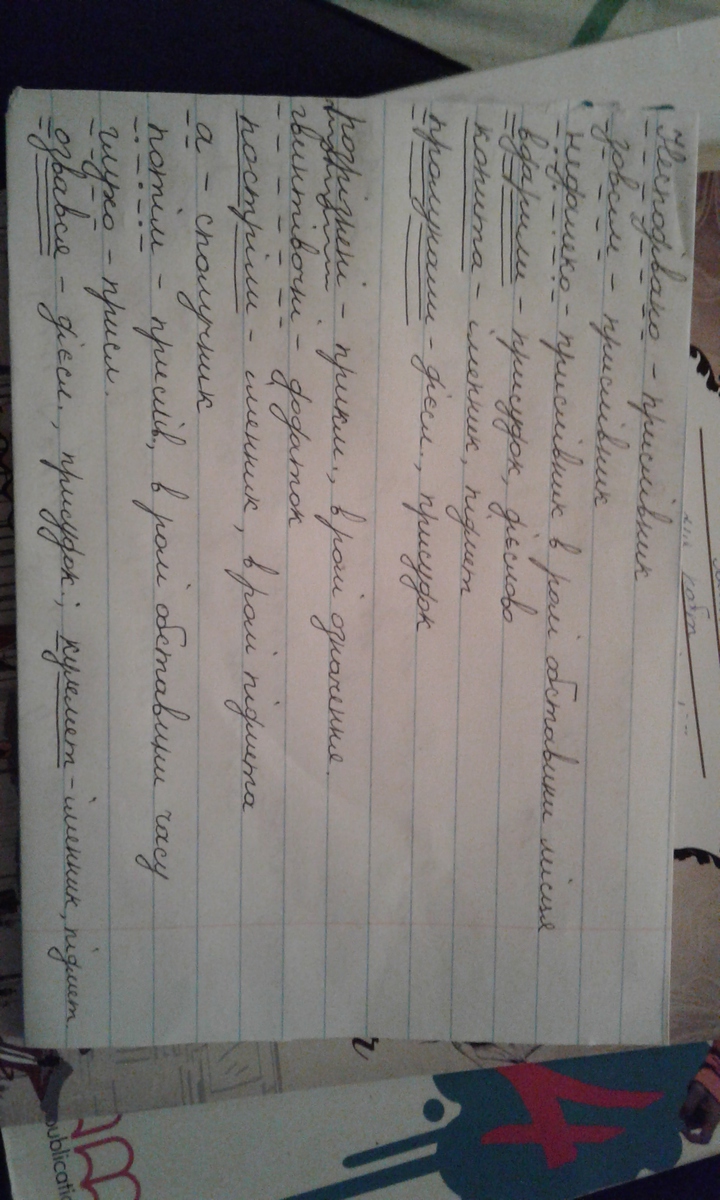 Несподівано - прислівник
зовсім - прислівник
недалеко - прислівник в ролі обставини місця
вдарили - присудок, дієслово
копита - іменник, підмет
пролунали - дієсл., присудок
розрізнені - прикм., в ролі означення.
гвинтівочні - додаток
постріли - іменник, в ролі підмета
а - сполучник
потім - прислів, в ролі обставини часу
глухо - присл.
озвався - дієсл., присудок; кулемет - іменник, підмет
publicatio